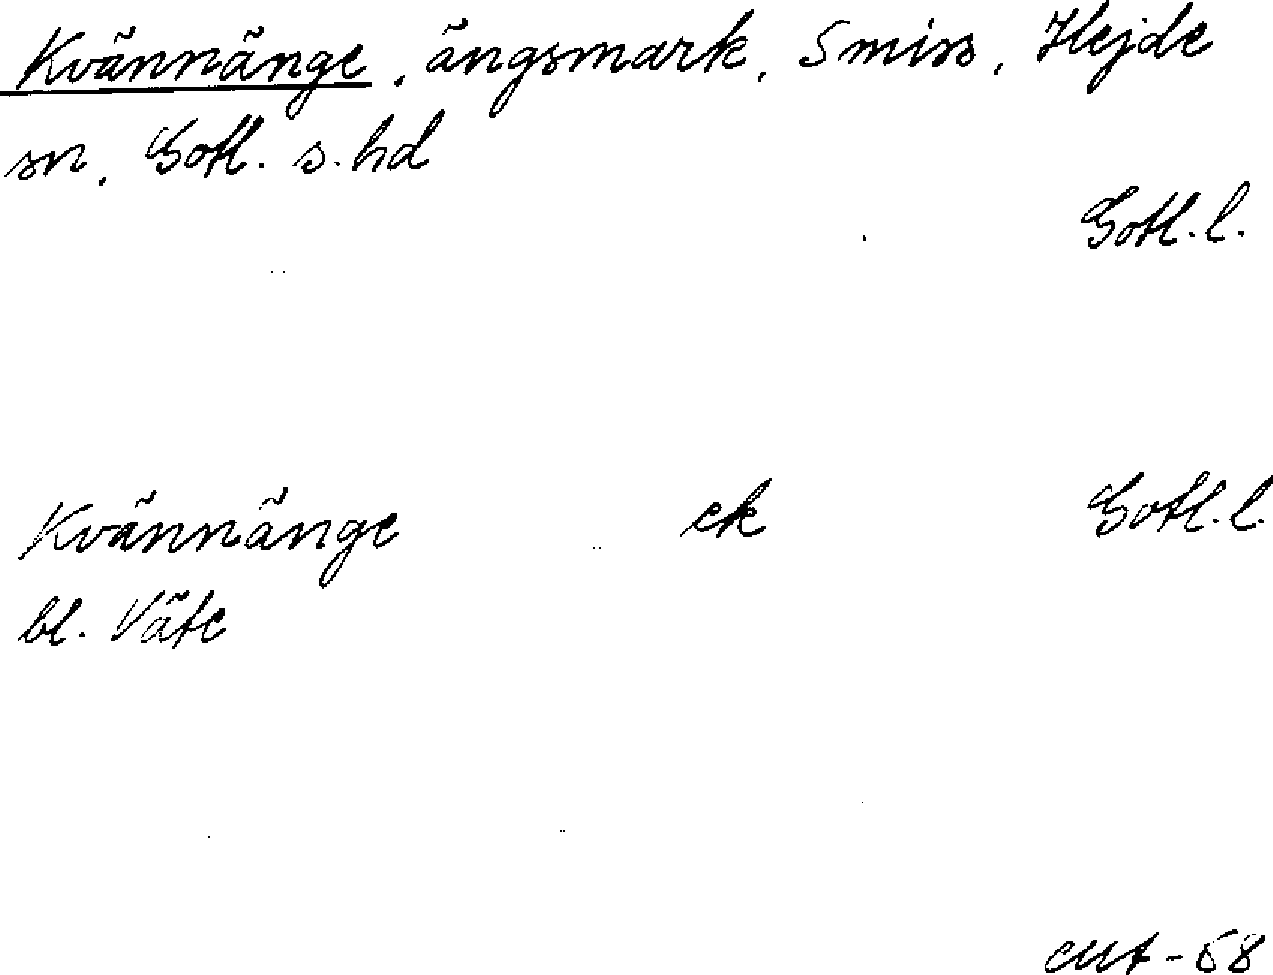 Kvännänge, ängsmark, Smiss, Hejde
sn, Gotl. s. hd
Gotl. l.
Kvännänge ek Gotl. l.
bl. Väte